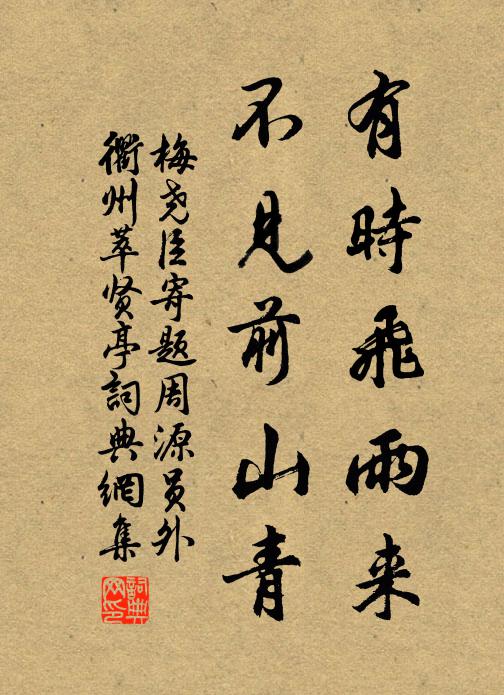 有時飛雨来
不見前山青
梅尧臣寄题周源员外
衢州萃贤亭詞典網集
詞典網印